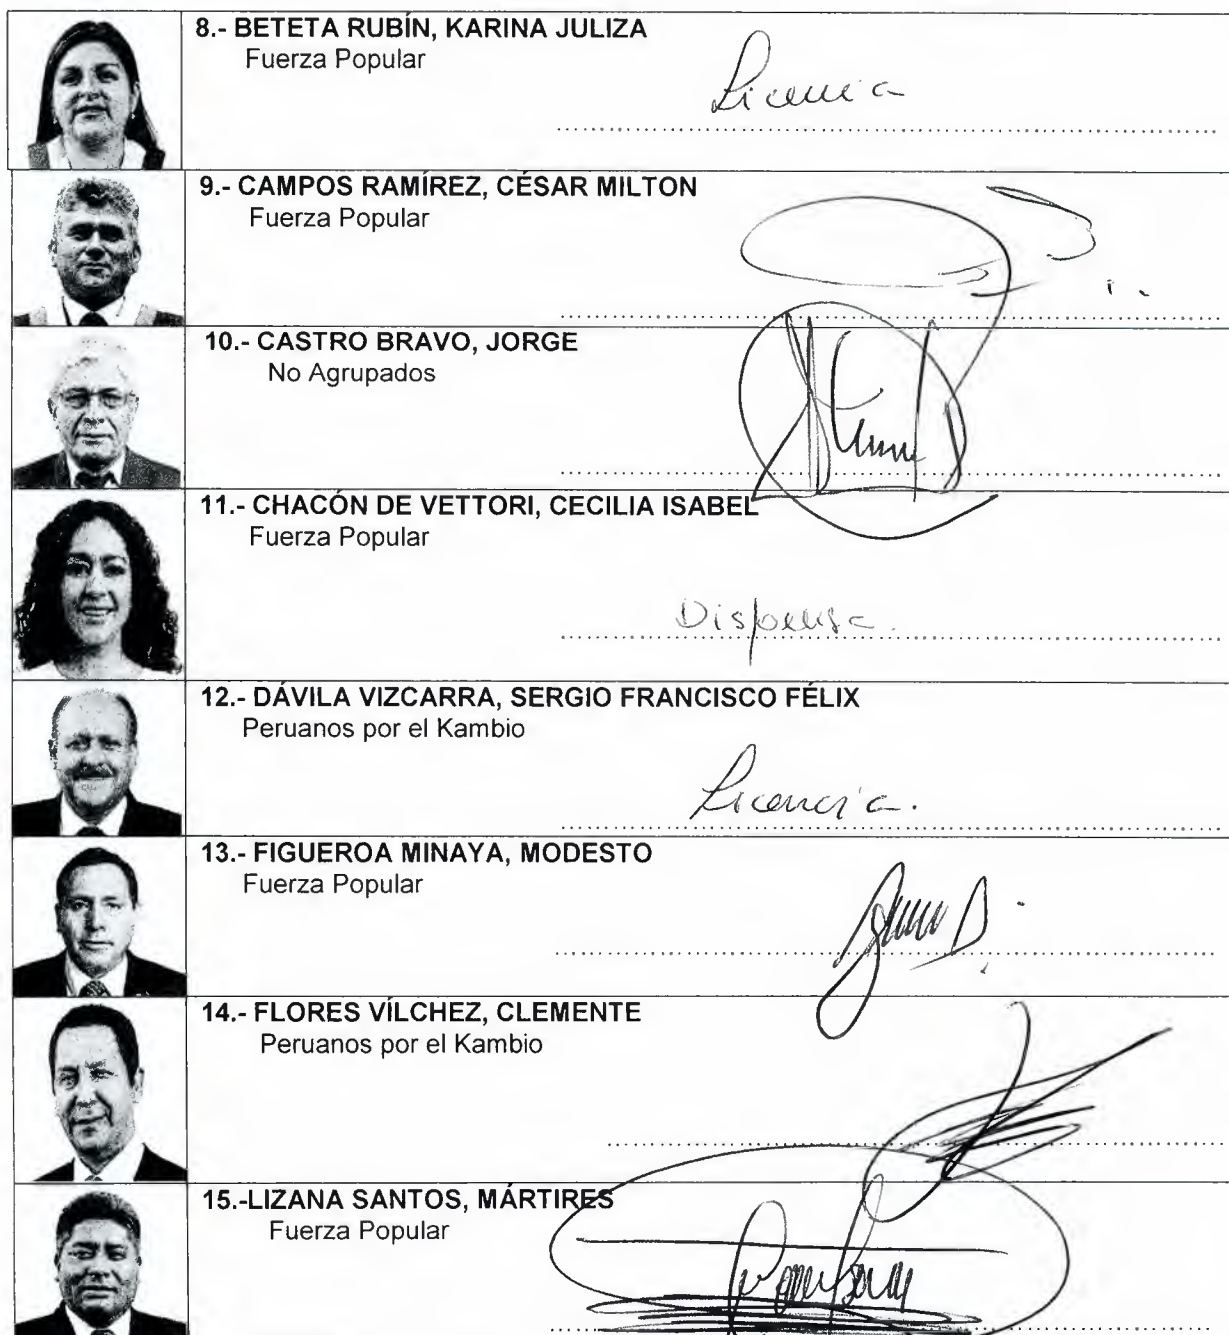 8.- BETETA RUBÍN, KARINA JULIZA
Fuerza Popular
Licencia
9.- CAMPOS RAMÍREZ, CÉSAR MILTON
Fuerza Popular
10.- CASTRO BRAVO, JORGE
No Agrupados
11.- CHACÓN DE VETTORI, CECILIA ISABEL
Fuerza Popular
Dispensa.
12.- DÁVILA VIZCARRA, SERGIO FRANCISCO FÉLIX
Peruanos por el Kambio
Licencia.
13.- FIGUEROA MINAYA, MODESTO
Fuerza Popular
14.- FLORES VÍLCHEZ, CLEMENTE
Peruanos por el Kambio
15.-LIZANA SANTOS, MÁRTIRES
Fuerza Popular